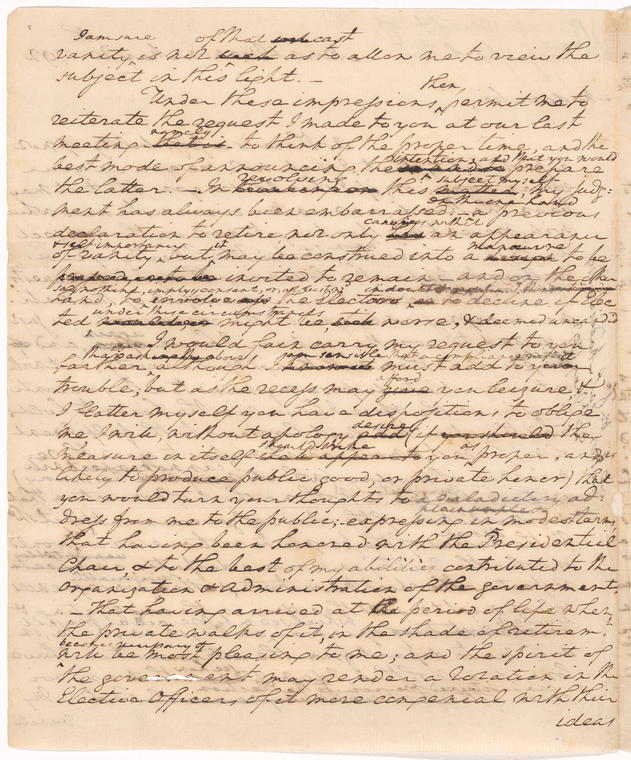 I am sure of that cast
vanity is not such as to allow me to view the
subject in this light. –
then
Under these impressions, permit me to
reiterate the request I made to you at our last
namely
meeting to think of the proper time, and the
intention; and that you would
best mode of announcing the prepare
revolving subject myself
the latter. – In this matter, my judg:
on the one hand
ment has always been embarrassed. – a previous
carries with it
declaration to retire not only an appearance
& self importance it manœuvre
of vanity, but may be construed into a to be
invited to remain. – and on the other
say nothing, implys consent; or at
hand, to the Electors to decline if Elec
under these circumstances
ted might be worse, & deemed uncandid
I would fain carry my request to you
than is asked above, I am sensible that a compliance with it
farther although must add to your
afford
trouble; but as the recess may give you leisure, &
I flatter myself you have dispositions to oblige
desire
me, I will, without apology (if the
should strike as
measure in itself you proper, and
likely to produce public good, or private honor) that
you would turn your thoughts to a valadictory ad:
plain & modest
dress from me to the public; expressing in
that having been honored with the Presidential
Chair, & to the best of my abilities contributed to the
organization & administration of the government
– That having arrived at the period of life when
the private walks of it, in the shade of retirem.t
become necessary &
will be most pleasing to me; and the spirit of
the government may render a rotation in the
Elective Officers of it more congenial with their
ideas